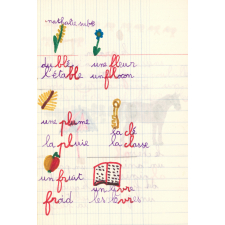 du blé
l'étable
une fleur
un flocon
une plume
la pluie
la clé
la classe
un fruit
froid
un livre
les lèvres